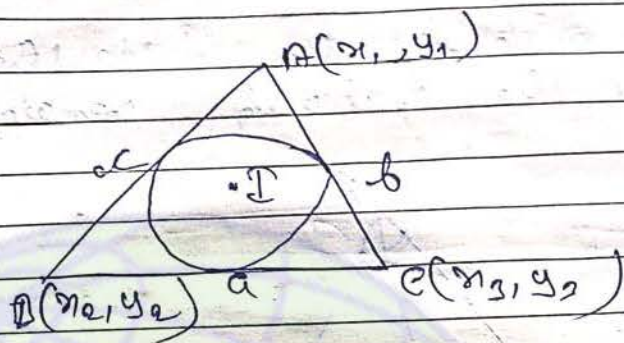 A(x₁, y₁)
c
b
I
B(x₂, y₂)
a
C(x₃, y₃)